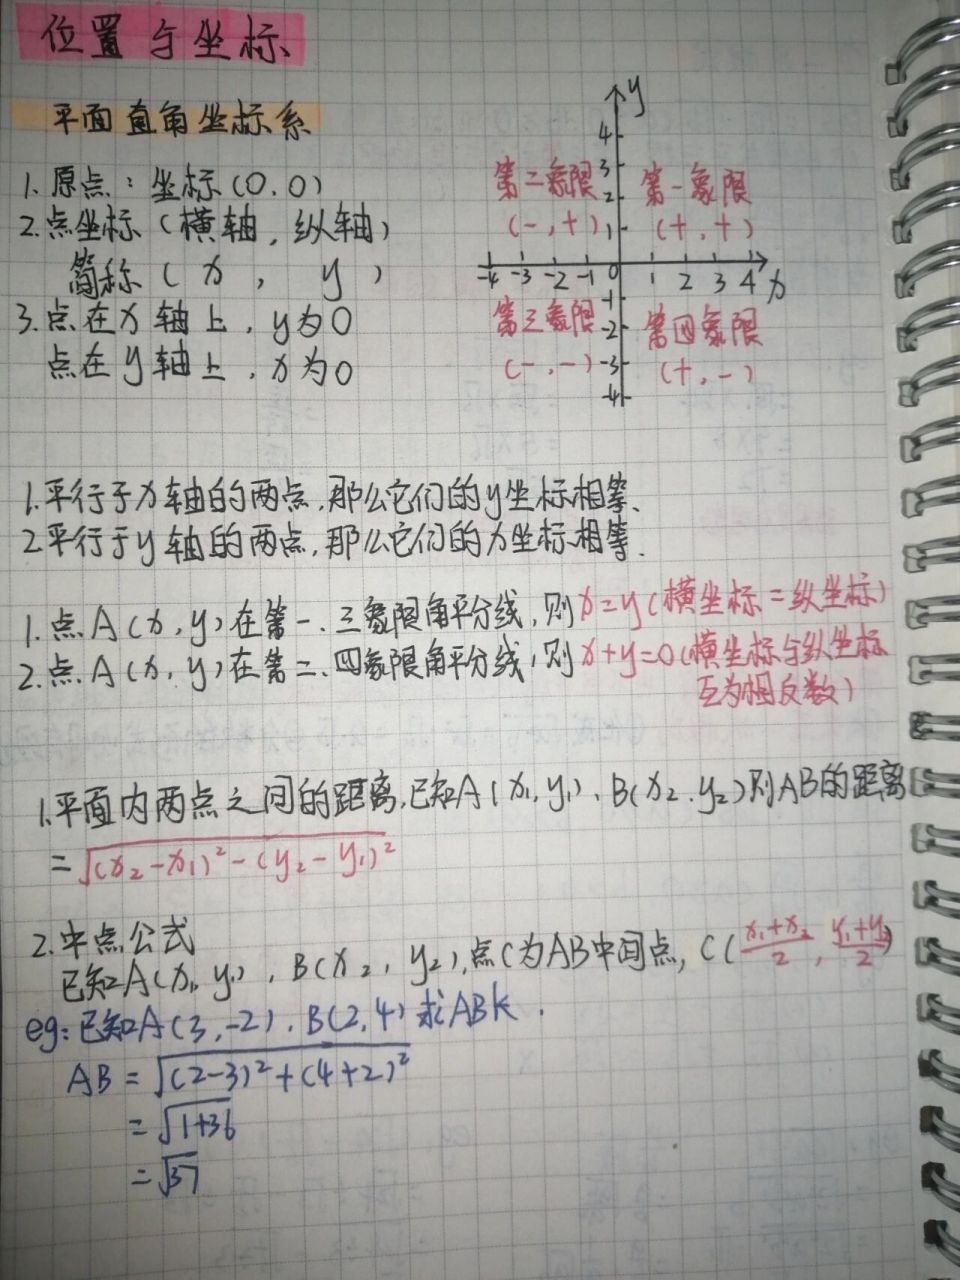 位置与坐标
平面直角坐标系
1. 原点：坐标(0.0)
2. 点坐标（横轴，纵轴）
简称（x，y）
3. 点在x轴上，y为0
点在y轴上，x为0
y
4
3
2
1
第二象限
(-,+)
第一象限
(+,+)
-4 -3 -2 -1 0 1 2 3 4 x
-1
-2
-3
-4
第三象限
(-,-)
第四象限
(+,-)
1.平行于x轴的两点,那么它们的y坐标相等、
2.平行于y轴的两点,那么它们的x坐标相等.
1.点A(x,y)在第一、三象限角平分线,则x=y(横坐标=纵坐标)
2.点A(x,y)在第二、四象限角平分线,则x+y=0(横坐标与纵坐标
互为相反数)
1.平面内两点之间的距离,已知A(x₁,y₁)、B(x₂.y₂)则AB的距离
=√(x₂-x₁)²-(y₂-y₁)²
2.中点公式
已知A(x₁,y₁),B(x₂,y₂),点C为AB中间点,C(x₁+x₂/2,y₁+y₂/2)
eg:已知A(3,-2).B(2,4)求ABk.
AB=√(2-3)²+(4+2)²
=√1+36
=√37